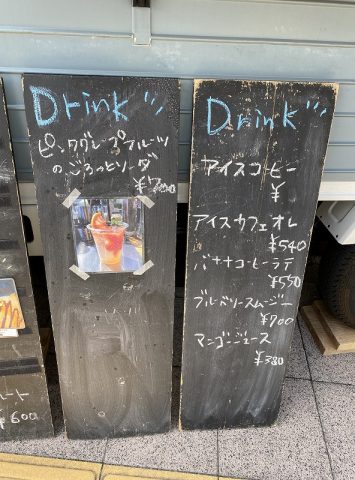 Drink
ピンクグレープフルーツ
のごろっとソーダ
¥700
Drink
アイスコーヒー
¥
アイスカフェオレ
¥540
バナナコーヒーラテ
¥550
ブルーベリースムージー
¥700
マンゴージュース
¥380
ート
¥600